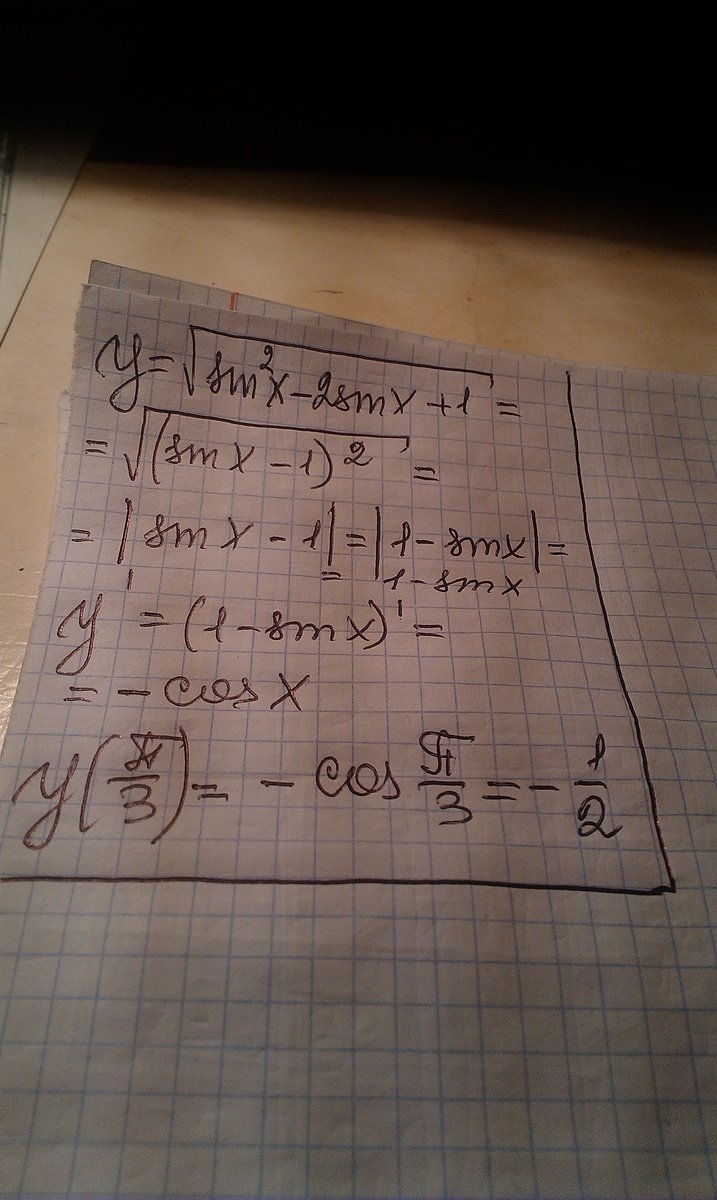 y = √(sin²x - 2sinx + 1) =
= √((sinx - 1)²) =
= |sinx - 1| = |1 - sinx| =
= 1 - sinx
y' = (1 - sinx)' =
= - cosx
y(π/3) = - cos π/3 = - 1/2